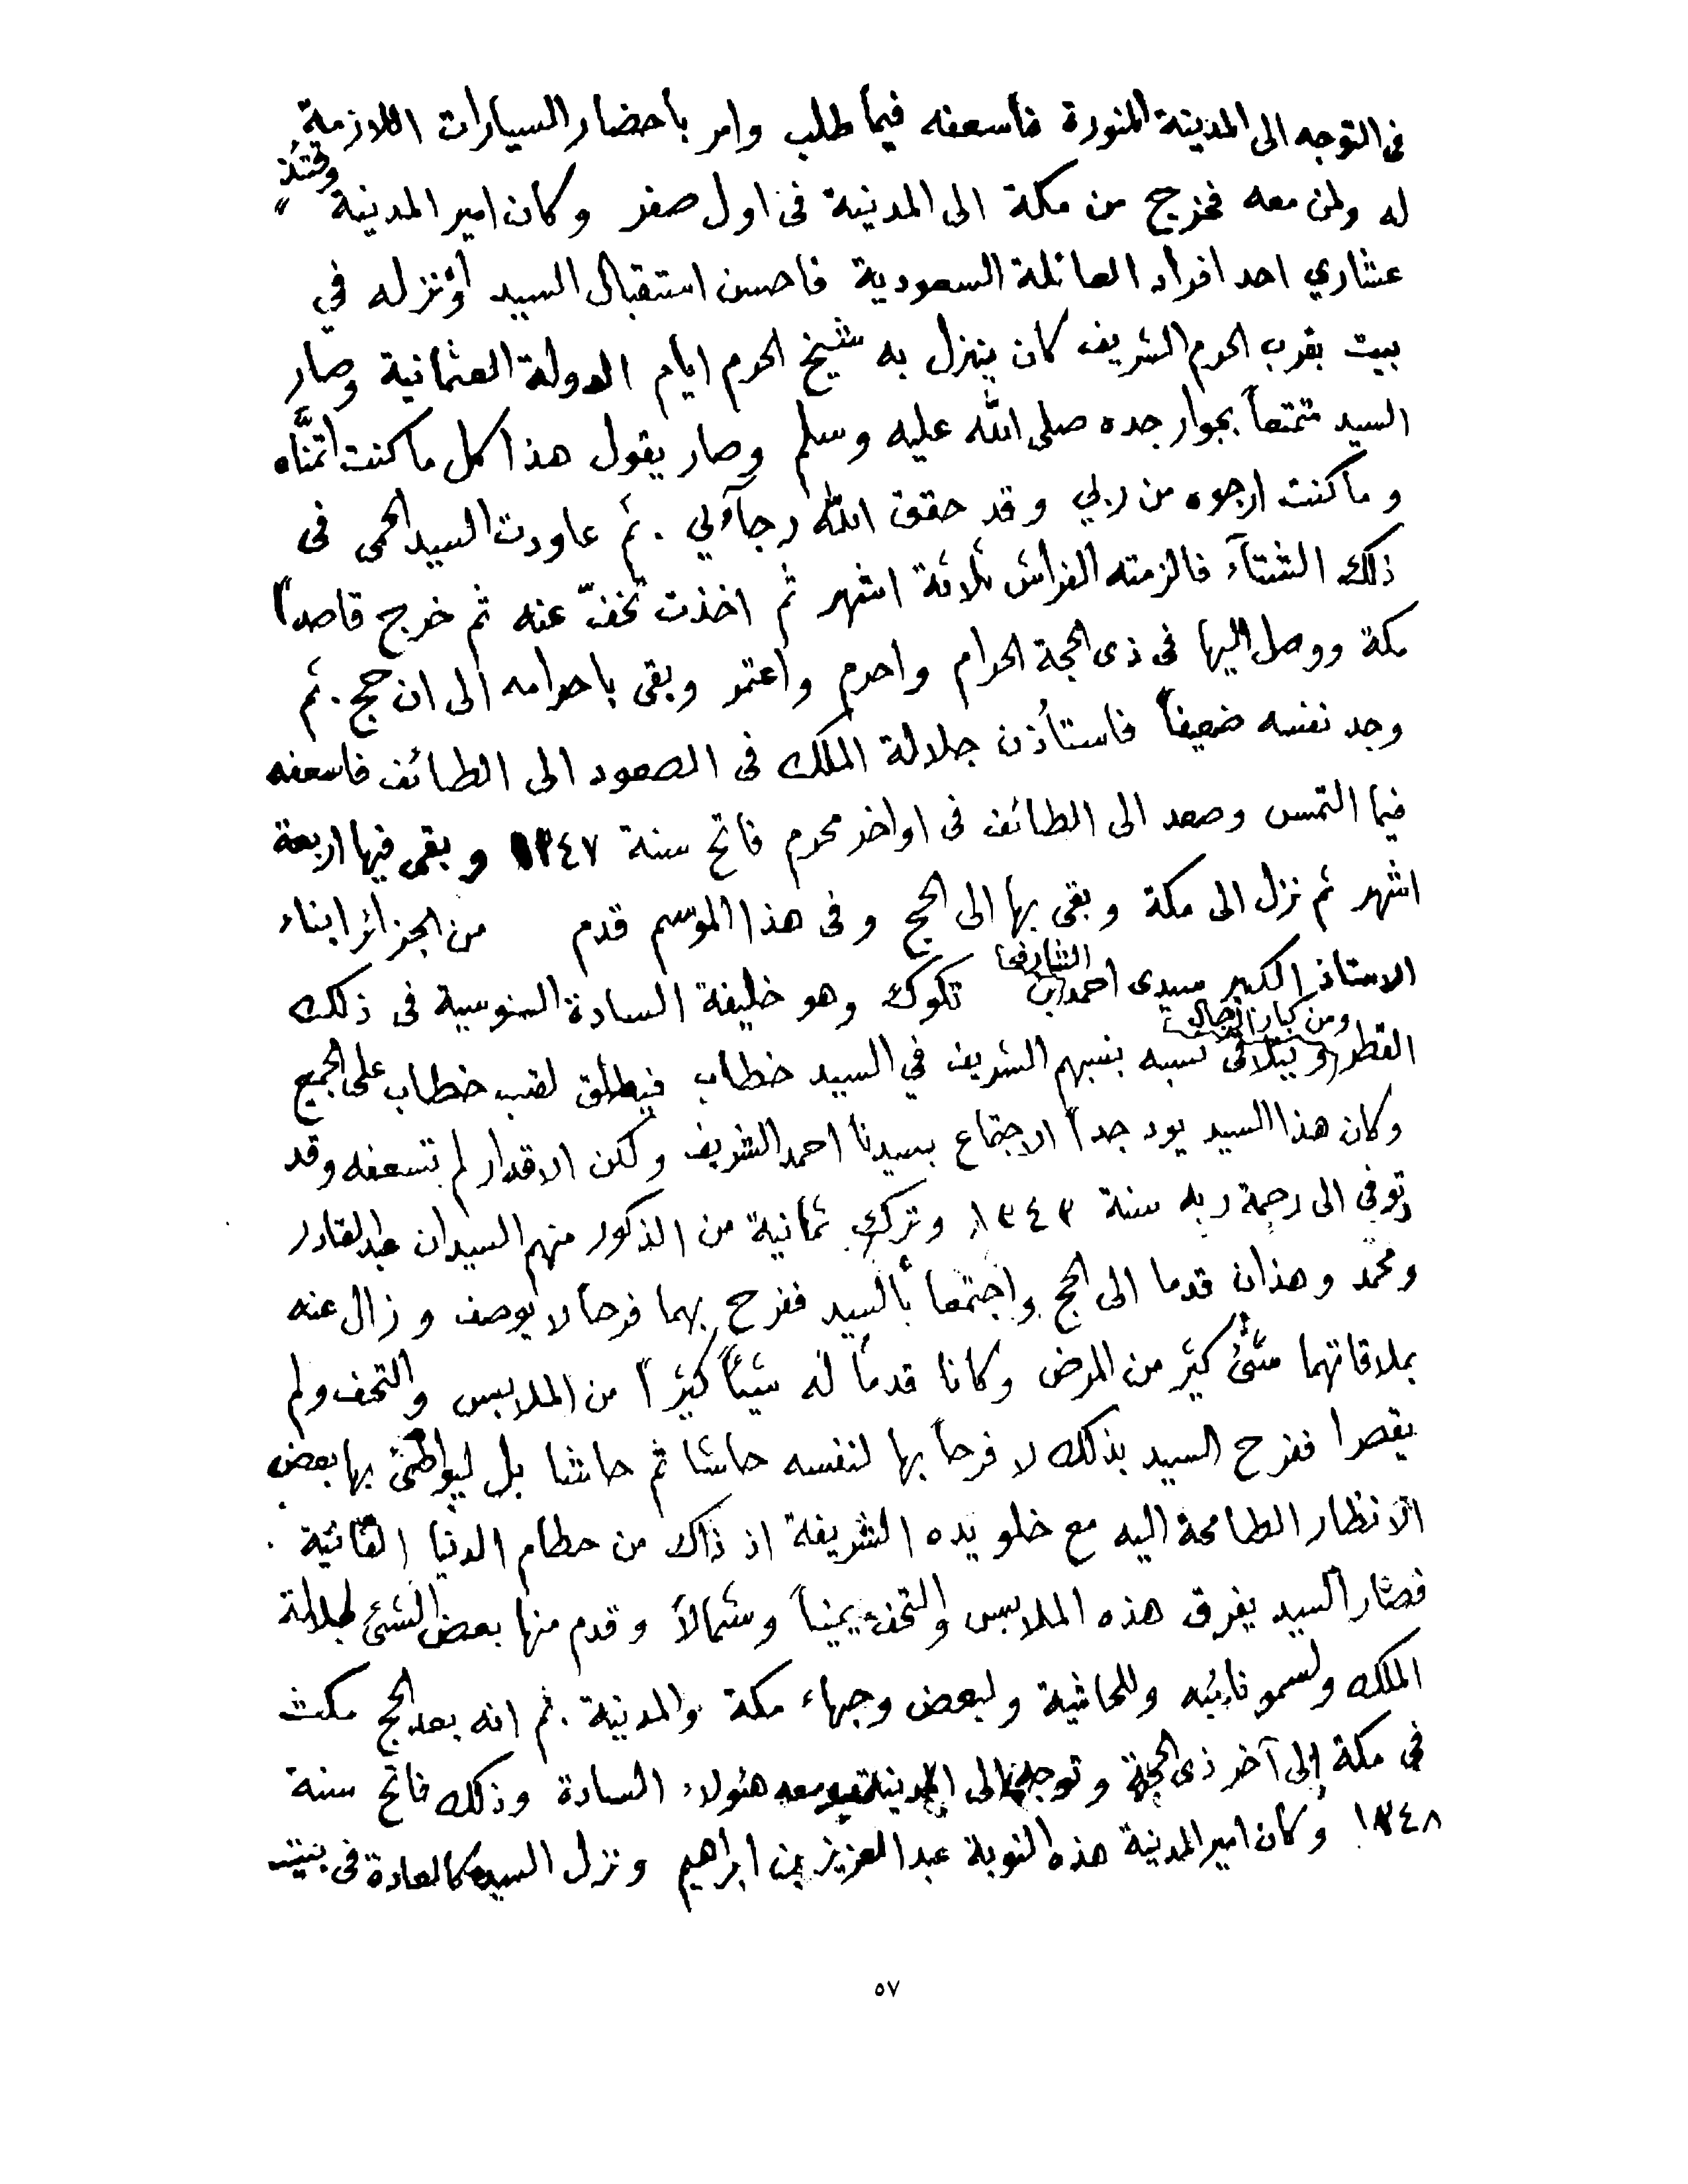 فى التوجه الى المدينة المنورة فأسعفه فيما طلب وامر باحضار السيارات اللازمة
له ولمن معه فخرج من مكة الى المدينة فى اول صفر وكان امير المدينة وقتئذٍ
عشاري احد افراد العائلة السعودية فاحسن استقبال السيد وأنزله في
بيت بقرب الحرم الشريف كان ينزل به شيخ الحرم ايام الدولة العثمانية وصار
السيد متمتعاً بجوار جده صلى الله عليه وسلم وصار يقول هذا كل ما كنت اتمنَّاه
وما كنت ارجوه من ربي وقد حقق الله رجآءلي . ثم عاودت السيد الحمى فى
ذلك الشتآء فالزمته الفراش ثلاثة اشهر ثم اخذت تخفّ عنه ثم خرج قاصداً
مكة ووصل اليها فى ذى الحجة الحرام واحرم واعتمر وبقى باحرامه الى ان حج . ثم
وجد نفسه ضعيفاً فاستأذن جلالة الملك فى الصعود الى الطائف فاسعفه
فيما التمس وصعد الى الطائف فى اواخر محرم فاتح سنة ١٣٤٧ وبقى فيها اربعة
اشهر ثم نزل الى مكة وبقى بها الى الحج وفى هذا الموسم قدم من الجزائر ابناء
الشارف
الاستاذ الكبير سيدى احمد بن تكوك وهو خليفة السادة السنوسية فى ذلك
ومن كبار رجال
القطر ويتلاقى نسبه بنسبهم الشريف في السيد خطاب فيطلق لقب خطاب على الجميع
وكان هذا السيد يود جداً الاجتماع بسيدنا احمد الشريف ولكن الاقدار لم تسعفه وقد
توفي الى رحمة ربه سنة ١٣٤٣ وترك ثمانية من الذكور منهم السيدان عبد القادر
ومحمد وهذان قدما الى الحج واجتمعا بالسيد ففرح بهما فرحاً لا يوصف وزال عنه
بملاقاتهما شئ كثير من المرض وكانا قدما له شيئاً كثيراً من الملابس والتحف ولم
يقصرا ففرح السيد بذلك لا فرحاً بها لنفسه حاشا ثم حاشا بل ليواطئ بها بعض
الانظار الطامحة اليه مع خلو يده الشريفة اذ ذاك من حطام الدنيا الفانية .
فصار السيد يفرق هذه الملابس والتحف يميناً وشمالاً وقدم منها بعض الشئ لجلالة
الملك ولسمو نائبه وللحاشية ولبعض وجهاء مكة والمدينة . ثم انه بعد الحج مكث
فى مكة إلى آخر ذى الحجة وتوجه الى المدينة ومعه هئولاء السادة وذلك فاتح سنة
١٣٤٨ وكان امير المدينة هذه النوبة عبد العزيز بن ابراهيم ونزل السيد كالعادة فى بيت
٥٧